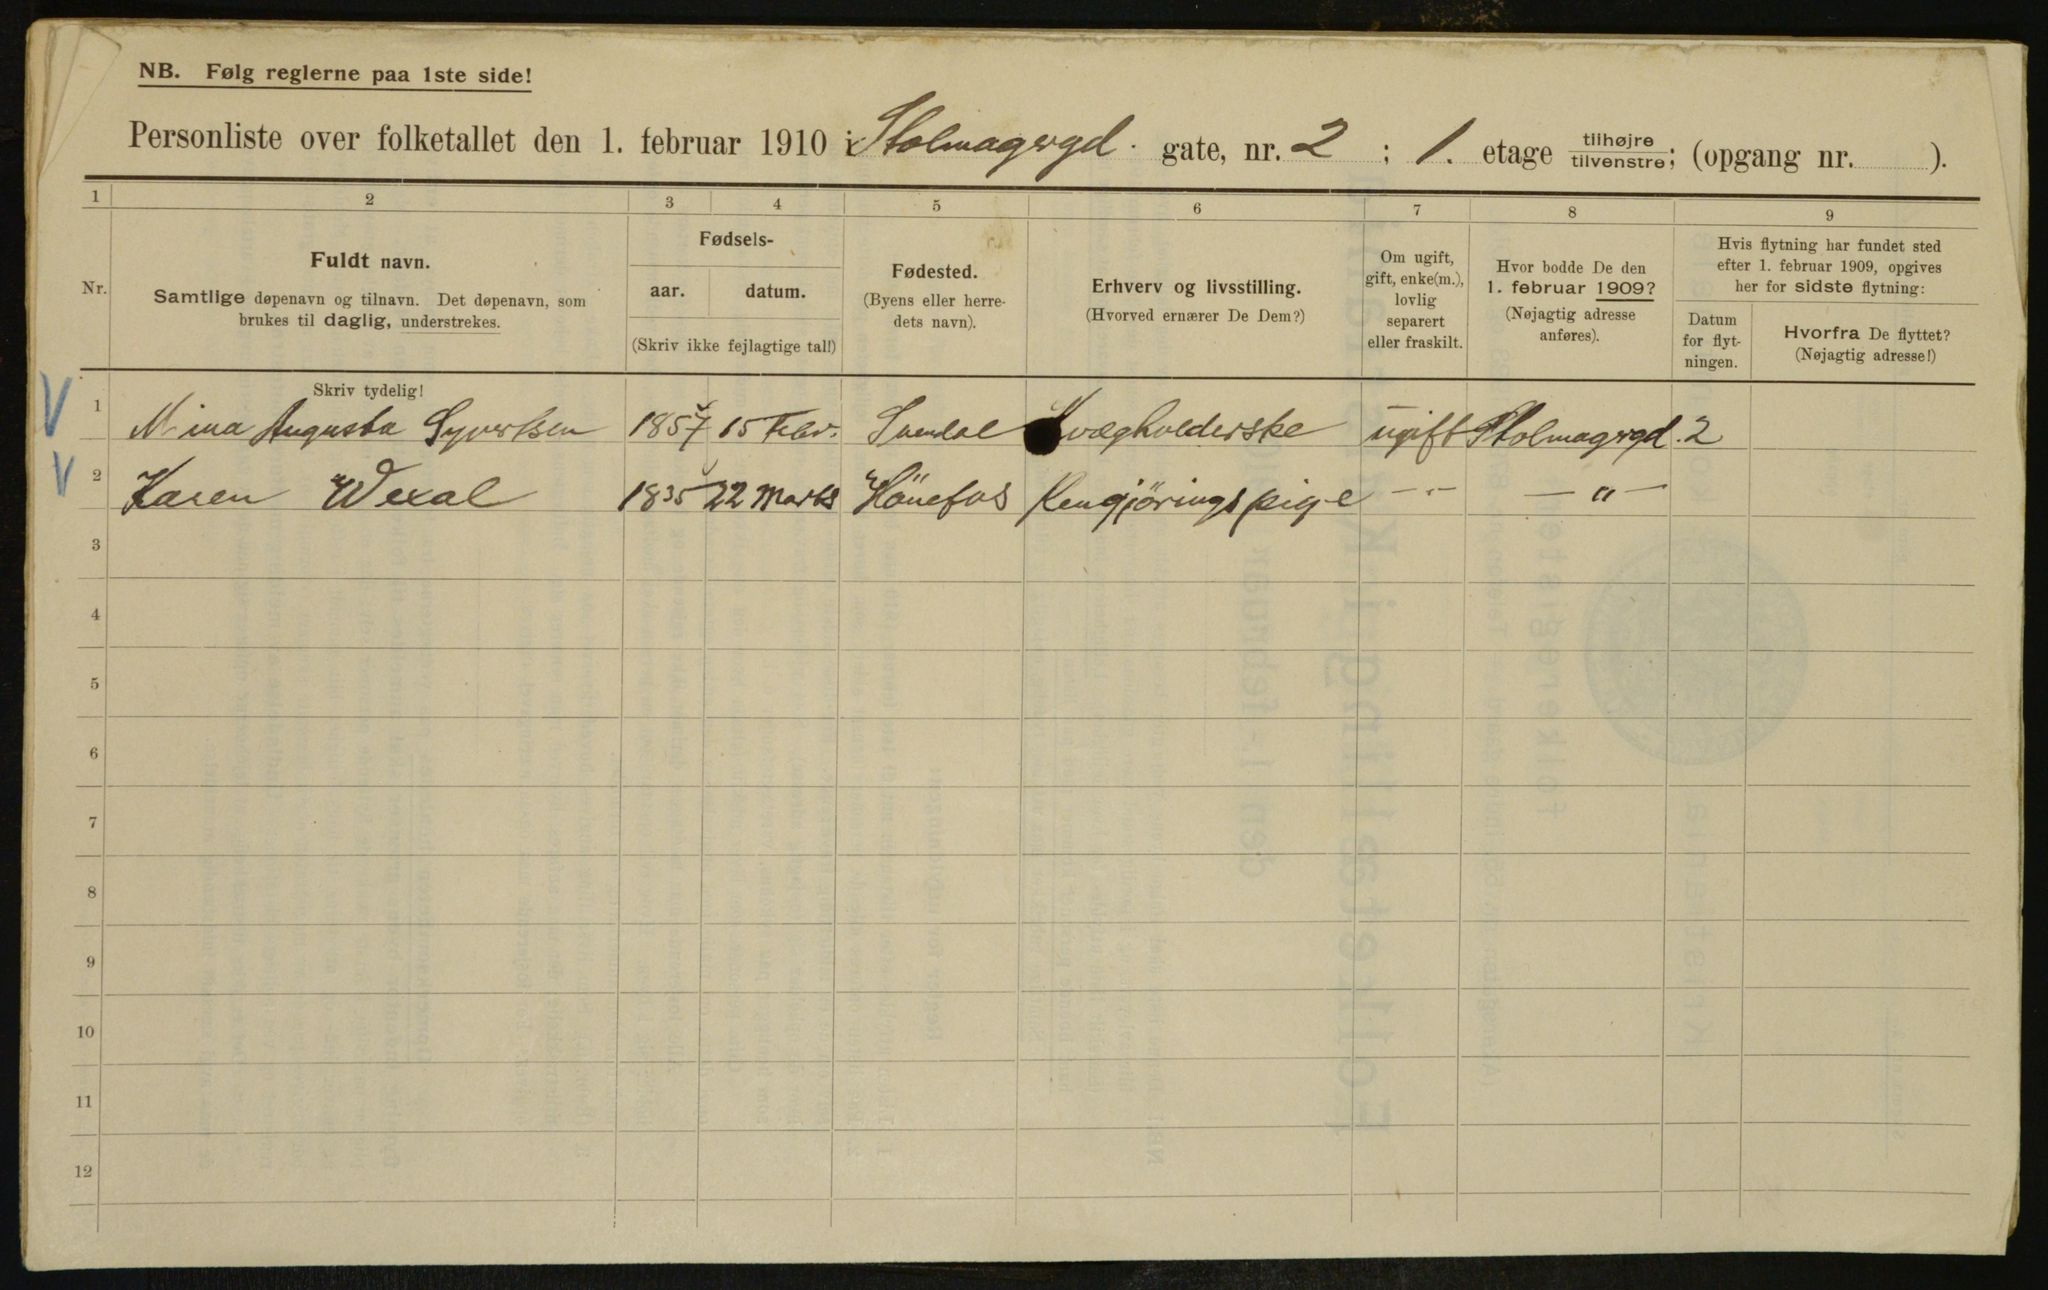 NB. Følg reglerne paa 1ste side!
Personliste over folketallet den 1. februar 1910 i Stolmagergd. gate, nr. 2 ; 1. etage tilhøjre tilvenstre; (opgang nr. ).
1 2 3 4 5 6 7 8 9
Nr.
Fuldt navn.
Samtlige døpenavn og tilnavn. Det døpenavn, som
brukes til daglig, understrekes.
Skriv tydelig!
Fødsels-
aar. datum.
(Skriv ikke fejlagtige tal!)
Fødested.
(Byens eller herre-
dets navn).
Erhverv og livsstilling.
(Hvorved ernærer De Dem?)
Om ugift,
gift, enke(m.),
lovlig
separert
eller fraskilt.
Hvor bodde De den
1. februar 1909?
(Nøjagtig adresse
anføres).
Hvis flytning har fundet sted
efter 1. februar 1909, opgives
her for sidste flytning:
Datum
for flyt-
ningen.
Hvorfra De flyttet?
(Nøjagtig adresse!)
1 Mina Augusta Syvertsen 1857 15 Febr. Kvægholderske ugift Stolmagergd. 2
2 Karen Wexal 1835 22 Marts Hönefos Rengjöringspige -"- -"-
3
4
5
6
7
8
9
10
11
12